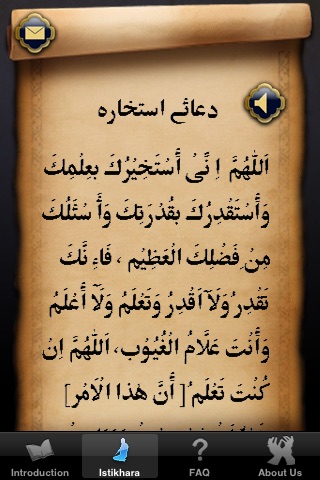 دعائے استخاره
اَللّٰهُمَّ اِ نِّىْ أَسْتَخِيْرُكَ بِعِلْمِكَ
وَأَسْتَقْدِرُكَ بِقُدْرَتِكَ وَأَ سْئَلُكَ
مِنْ فَضْلِكَ الْعَظِيْمِ ، فَاِ نَّكَ
تَقْدِرُ وَلَآ اَقْدِرُ وَتَعْلَمُ وَلَآ أَعْلَمُ
وَأَنْتَ عَلَّامُ الْغُيُوْبِ، اَللّٰهُمَّ اِنْ
كُنْتَ تَعْلَمُ [ أَنَّ هٰذَا الْاَمْرَ]
Introduction
Istikhara
FAQ
About Us